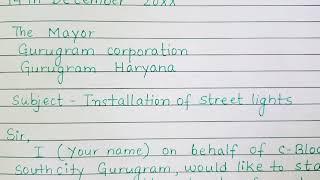 14 th December 20xx
The Mayor
Gurugram corporation
Gurugram Haryana
Subject - Installation of street lights
Sir,
I (Your name) on behalf of C-Bloc
southcity Gurugram, would like to sta